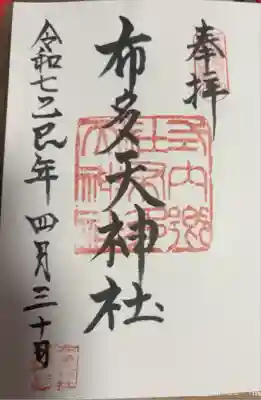 奉拝
布多天神社
令和七乙巳年四月三十日